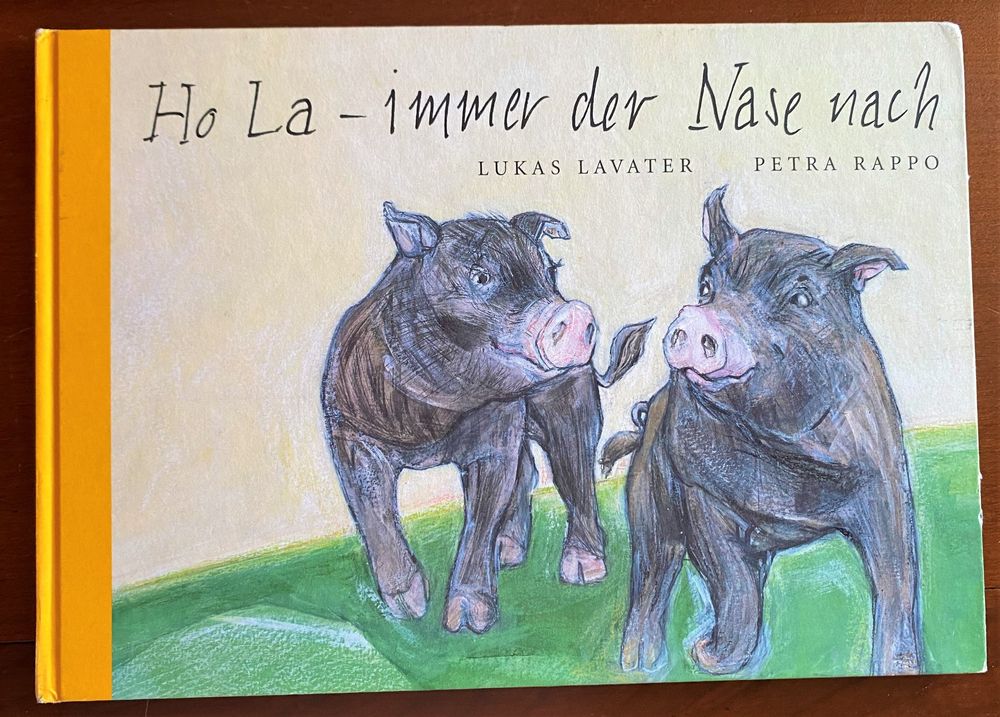 Ho La – immer der Nase nach
LUKAS LAVATER PETRA RAPPO